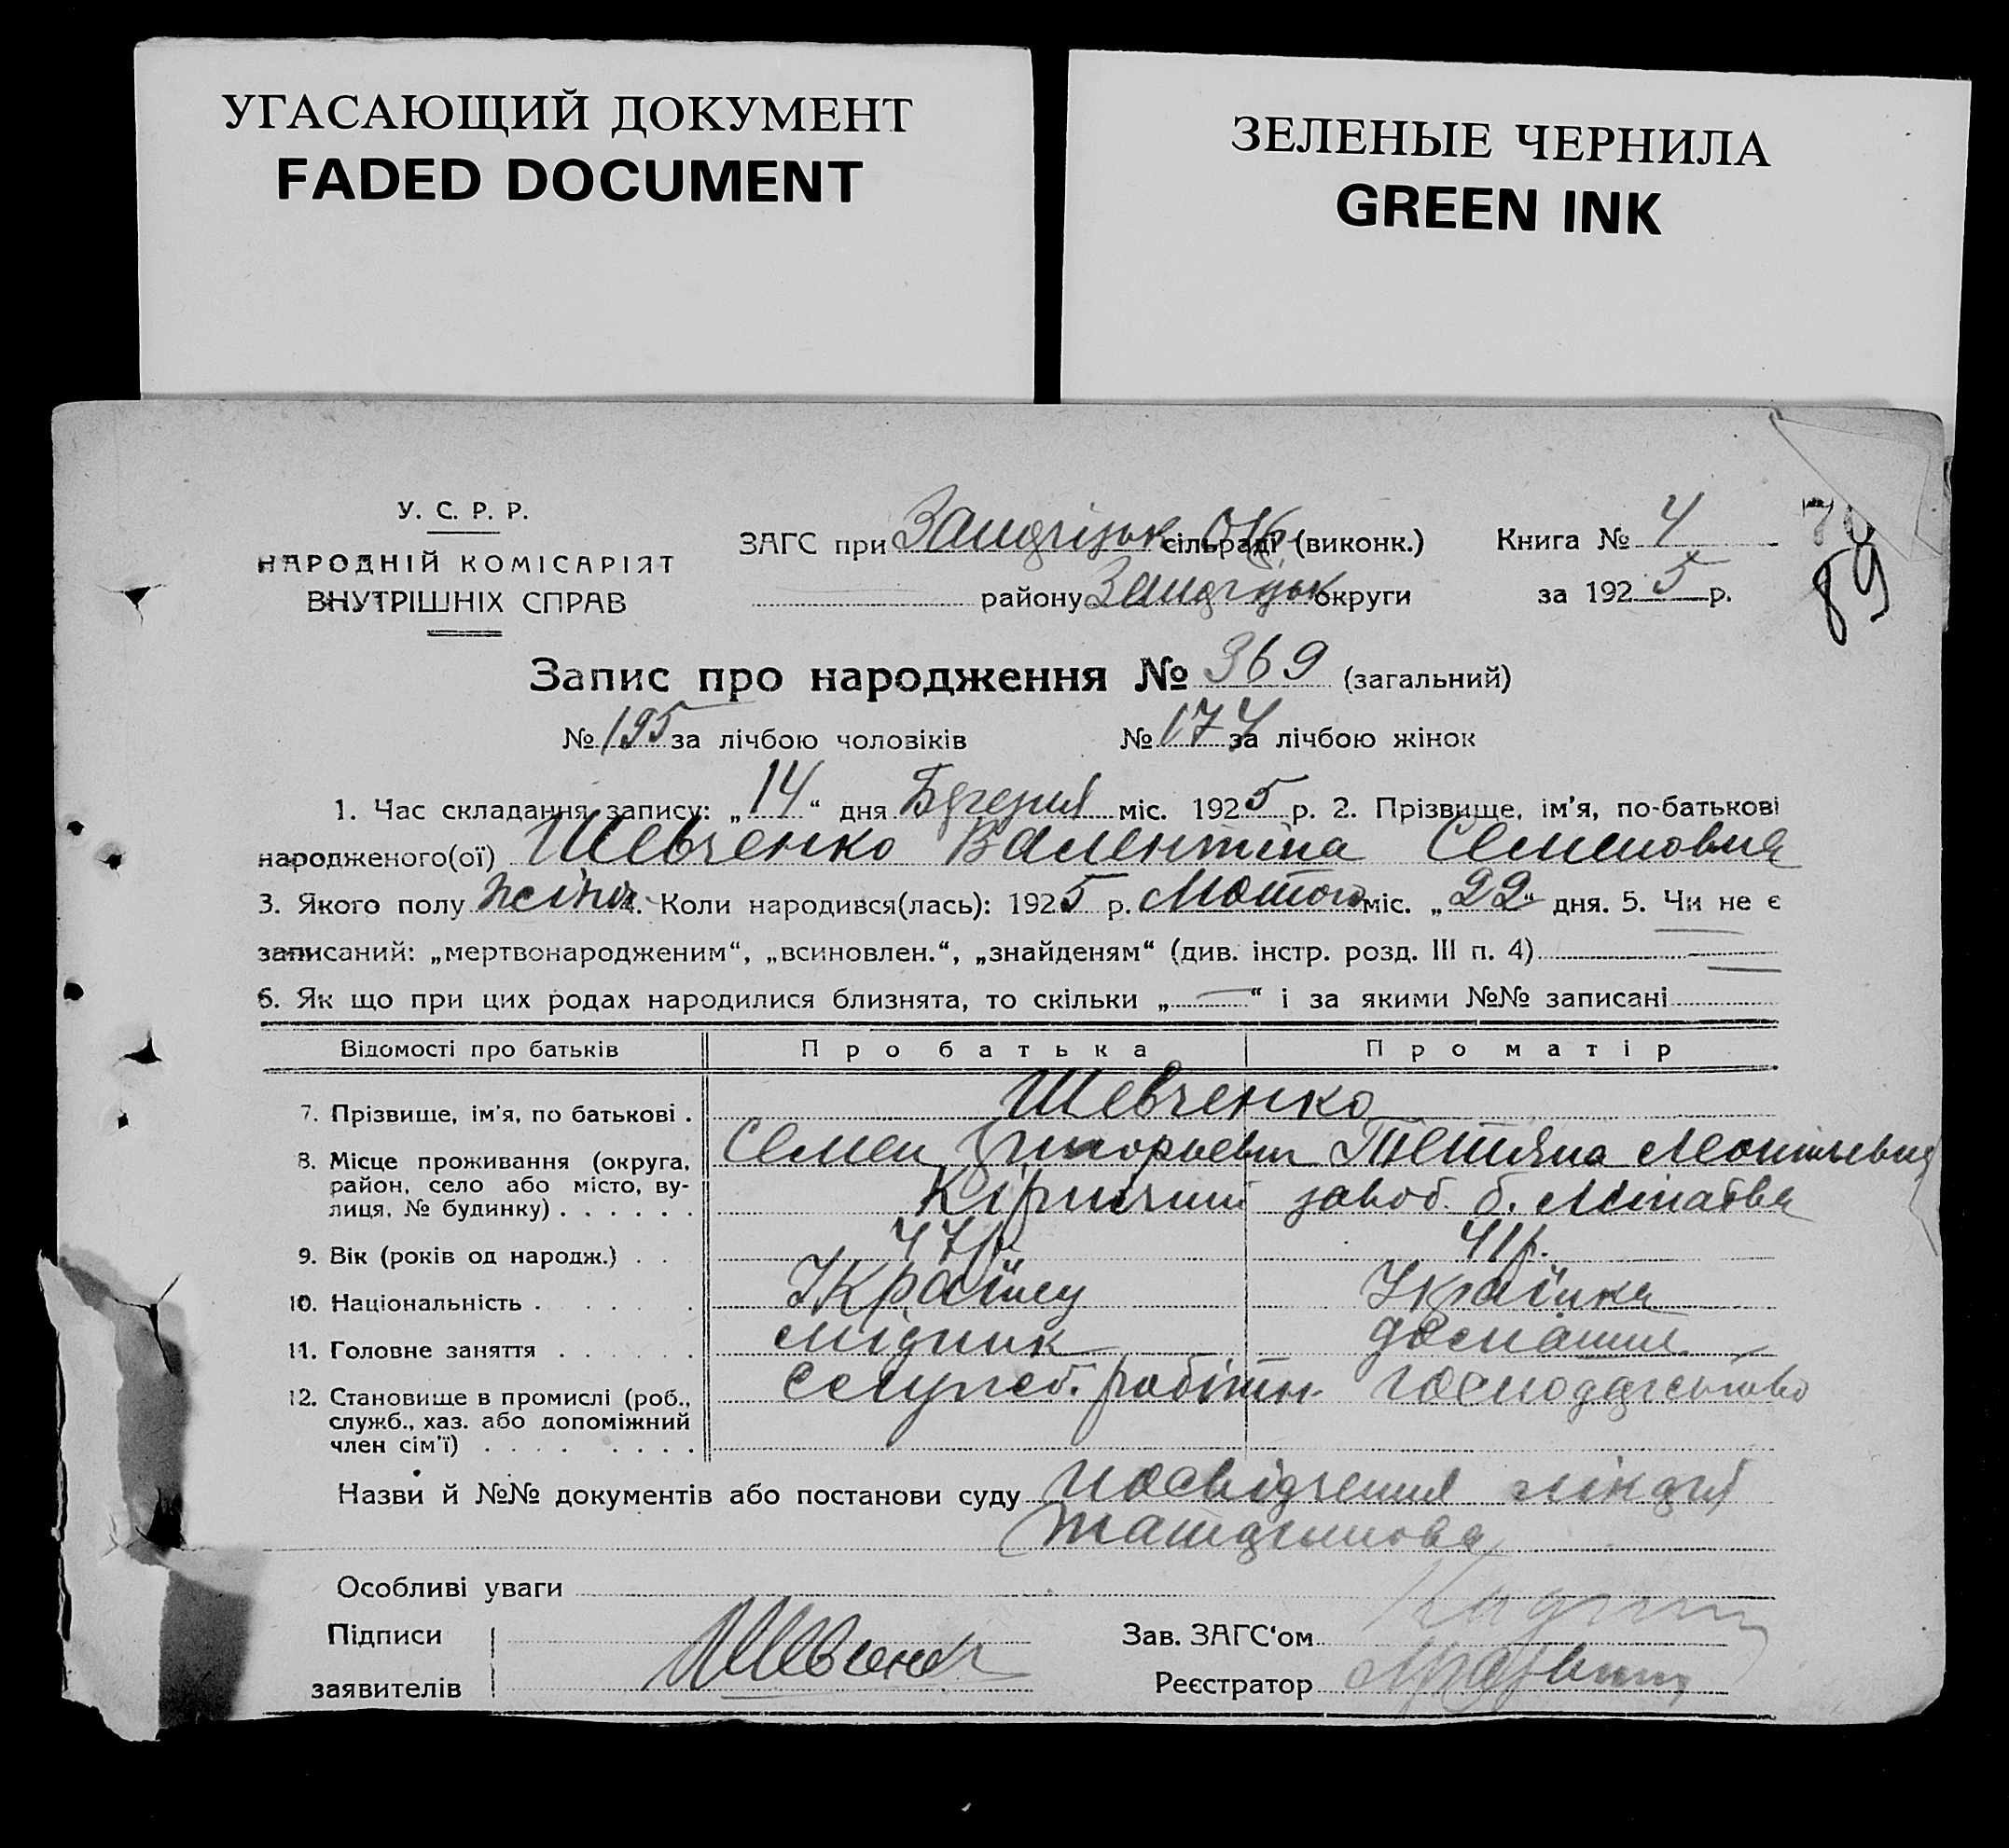 УГАСАЮЩИЙ ДОКУМЕНТ
FADED DOCUMENT
ЗЕЛЕНЫЕ ЧЕРНИЛА
GREEN INK
У. С. Р. Р.
НАРОДНІЙ КОМІСАРІЯТ
ВНУТРІШНІХ СПРАВ
ЗАГС при сільраді (виконк.)
району округи
Книга № 4
за 1925 р.
89
Запис про народження № 369 (загальний)
№ 195 за лічбою чоловіків № 174 за лічбою жінок
1. Час складання запису: „14“ дня Березня міс. 1925 р. 2. Прізвище, ім'я, по-батькові
народженого(ої) Шевченко Валентіна Семеновна
3. Якого полу жіноч. Коли народився(лась): 1925 р. Лютого міс. „22“ дня. 5. Чи не є
записаний: „мертвонародженим“, „всиновлен.“, „знайденям“ (див. інстр. розд. III п. 4)
6. Як що при цих родах народилися близнята, то скільки „—“ і за якими №№ записані
Відомості про батьків Про батька Про матір
7. Прізвище, ім'я, по батькові . Шевченко
Семен Григорьевич Тетяна Леонтьевна
8. Місце проживання (округа, район, село або місто, вулиця, № будинку) . . . . . . Кірпичний завод б. Мінаєва
9. Вік (років од народж.) . . 47р. 41р.
10. Національність . . . . . . Українец Українка
11. Головне заняття . . . . . . мідник домашнє
12. Становище в промислі (роб., служб., хаз. або допоміжний член сім'ї) . . . . . . . . робітн. господарство
Назви й №№ документів або постанови суду посвідчення лікаря
Особливі уваги
Підписи
заявителів
Шевченко
Зав. ЗАГС'ом
Реєстратор